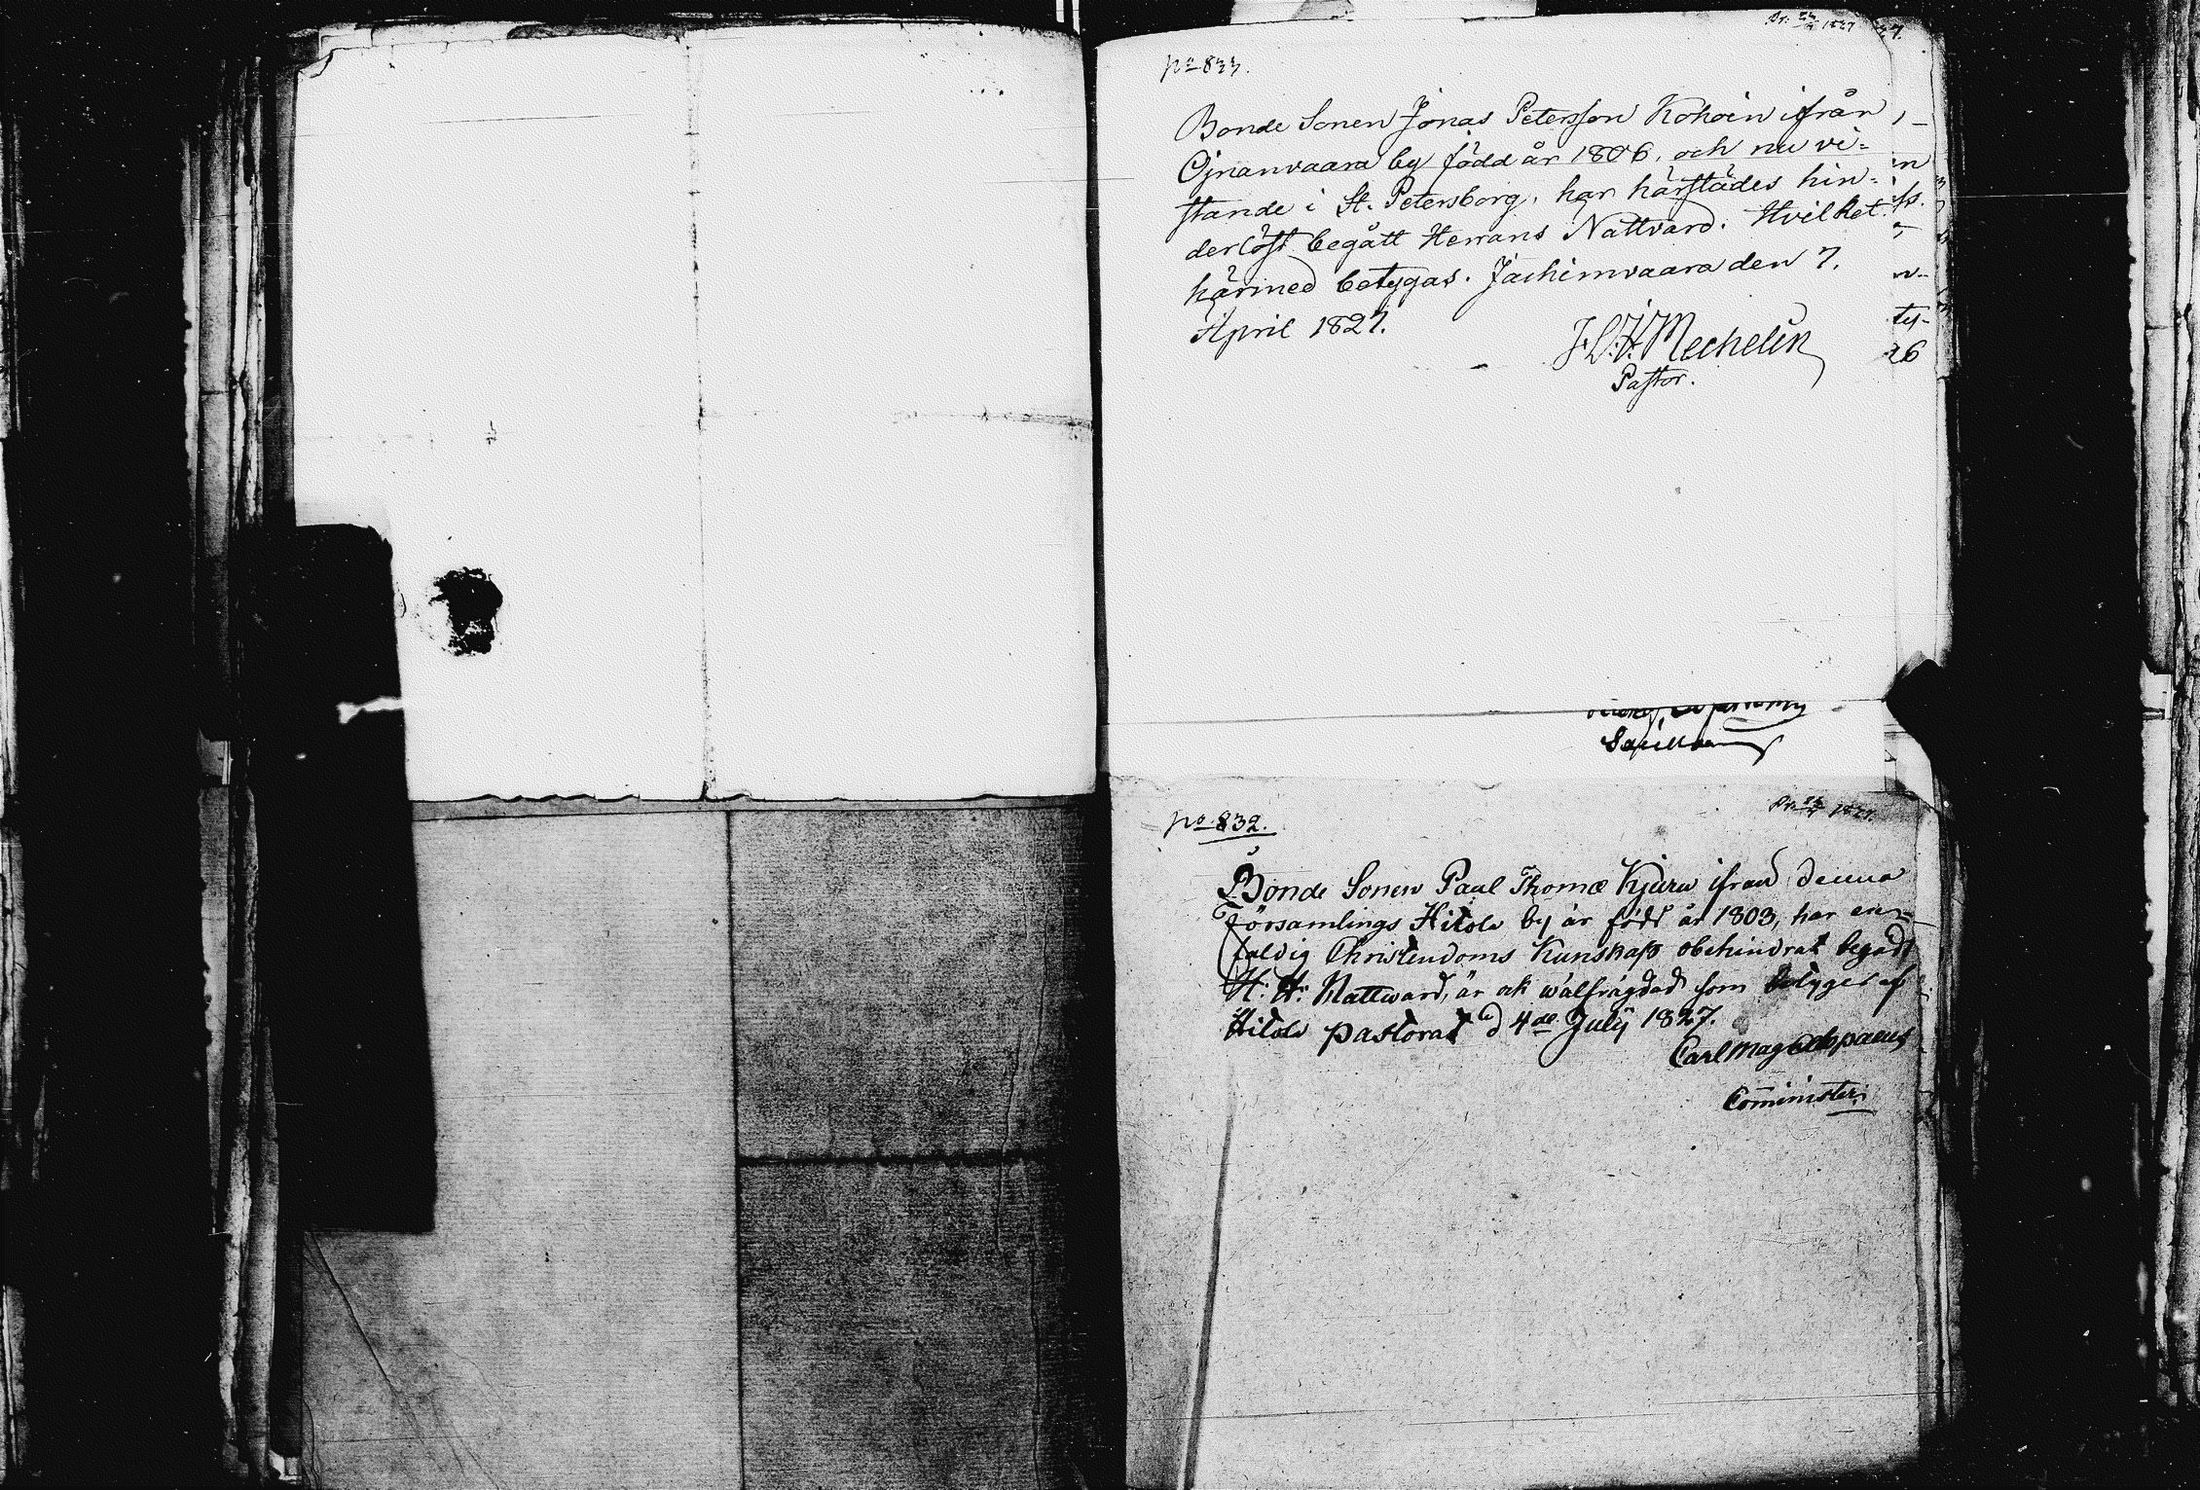 no 833.
Bonde Sonen Jonas Petersson Kohoin ifrån
Ojnanvaara by född år 1806, och nu vi=
stande i St. Petersborg, har härstädes hin=
derlöst begått Herrans Nattvard. Hvilket
härmed betygas. Jachimvaara den 7.
April 1827.
Mechelin
Pastor.
no 832.
Bonde Sonen Paul Thomæ Kjuru ifrån denna
Församlings Hitola by är född år 1803, har en=
faldig Christendoms Kunskap obehindrat begådt
H. H. Nattward, är ock wälfrägdad som betygas af
Hitola pastorat d 4de July 1827.
Carl Mag Alopaeus
Cominister